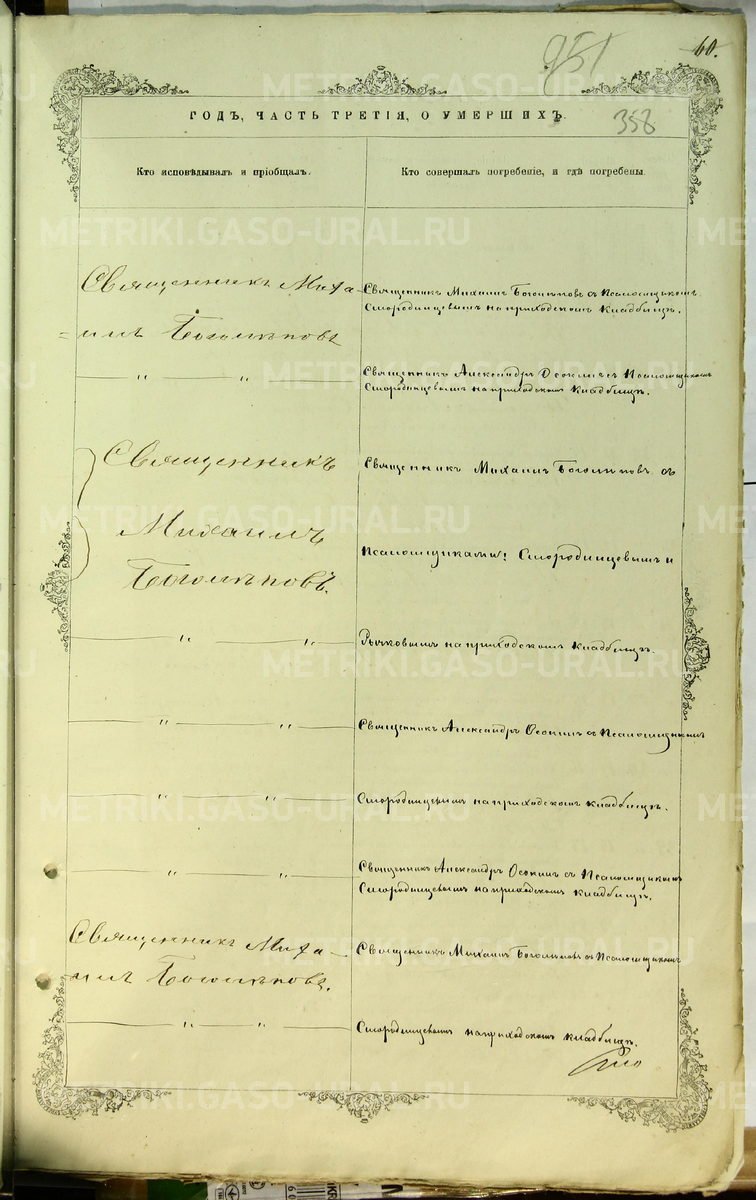 951
60.
METRIKI.GASO-URAL.RU
ГОДЪ, ЧАСТЬ ТРЕТІЯ, О УМЕРШИХЪ.
358
Кто исповѣдывалъ и пріобщалъ.
Кто совершалъ погребеніе, и гдѣ погребены.
Священникъ Миха-
=илъ Боголѣповъ
Священникъ Михаилъ Боголѣповъ съ Псаломщикомъ
Смородинцевымъ на приходскомъ кладбищѣ.
— " — " —
Священникъ Александръ Осокинъ съ Псаломщикомъ
Смородинцевымъ на приходскомъ кладбищѣ.
Священникъ
Михаилъ
Боголѣповъ.
Священникъ Михаилъ Боголѣповъ съ
Псаломщиками: Смородинцевымъ и
— " — " —
Рычковымъ на приходскомъ кладбищѣ.
— " — " —
Священникъ Александръ Осокинъ съ Псаломщикомъ
— " — " —
Смородинцевымъ на приходскомъ кладбищѣ.
— " — " —
Священникъ Александръ Осокинъ съ Псаломщикомъ
Смородинцевымъ на приходскомъ кладбищѣ.
Священникъ Миха-
илъ Боголѣповъ.
Священникъ Михаилъ Боголѣповъ съ Псаломщикомъ
— " — " —
Смородинцевымъ на приходскомъ кладбищѣ.